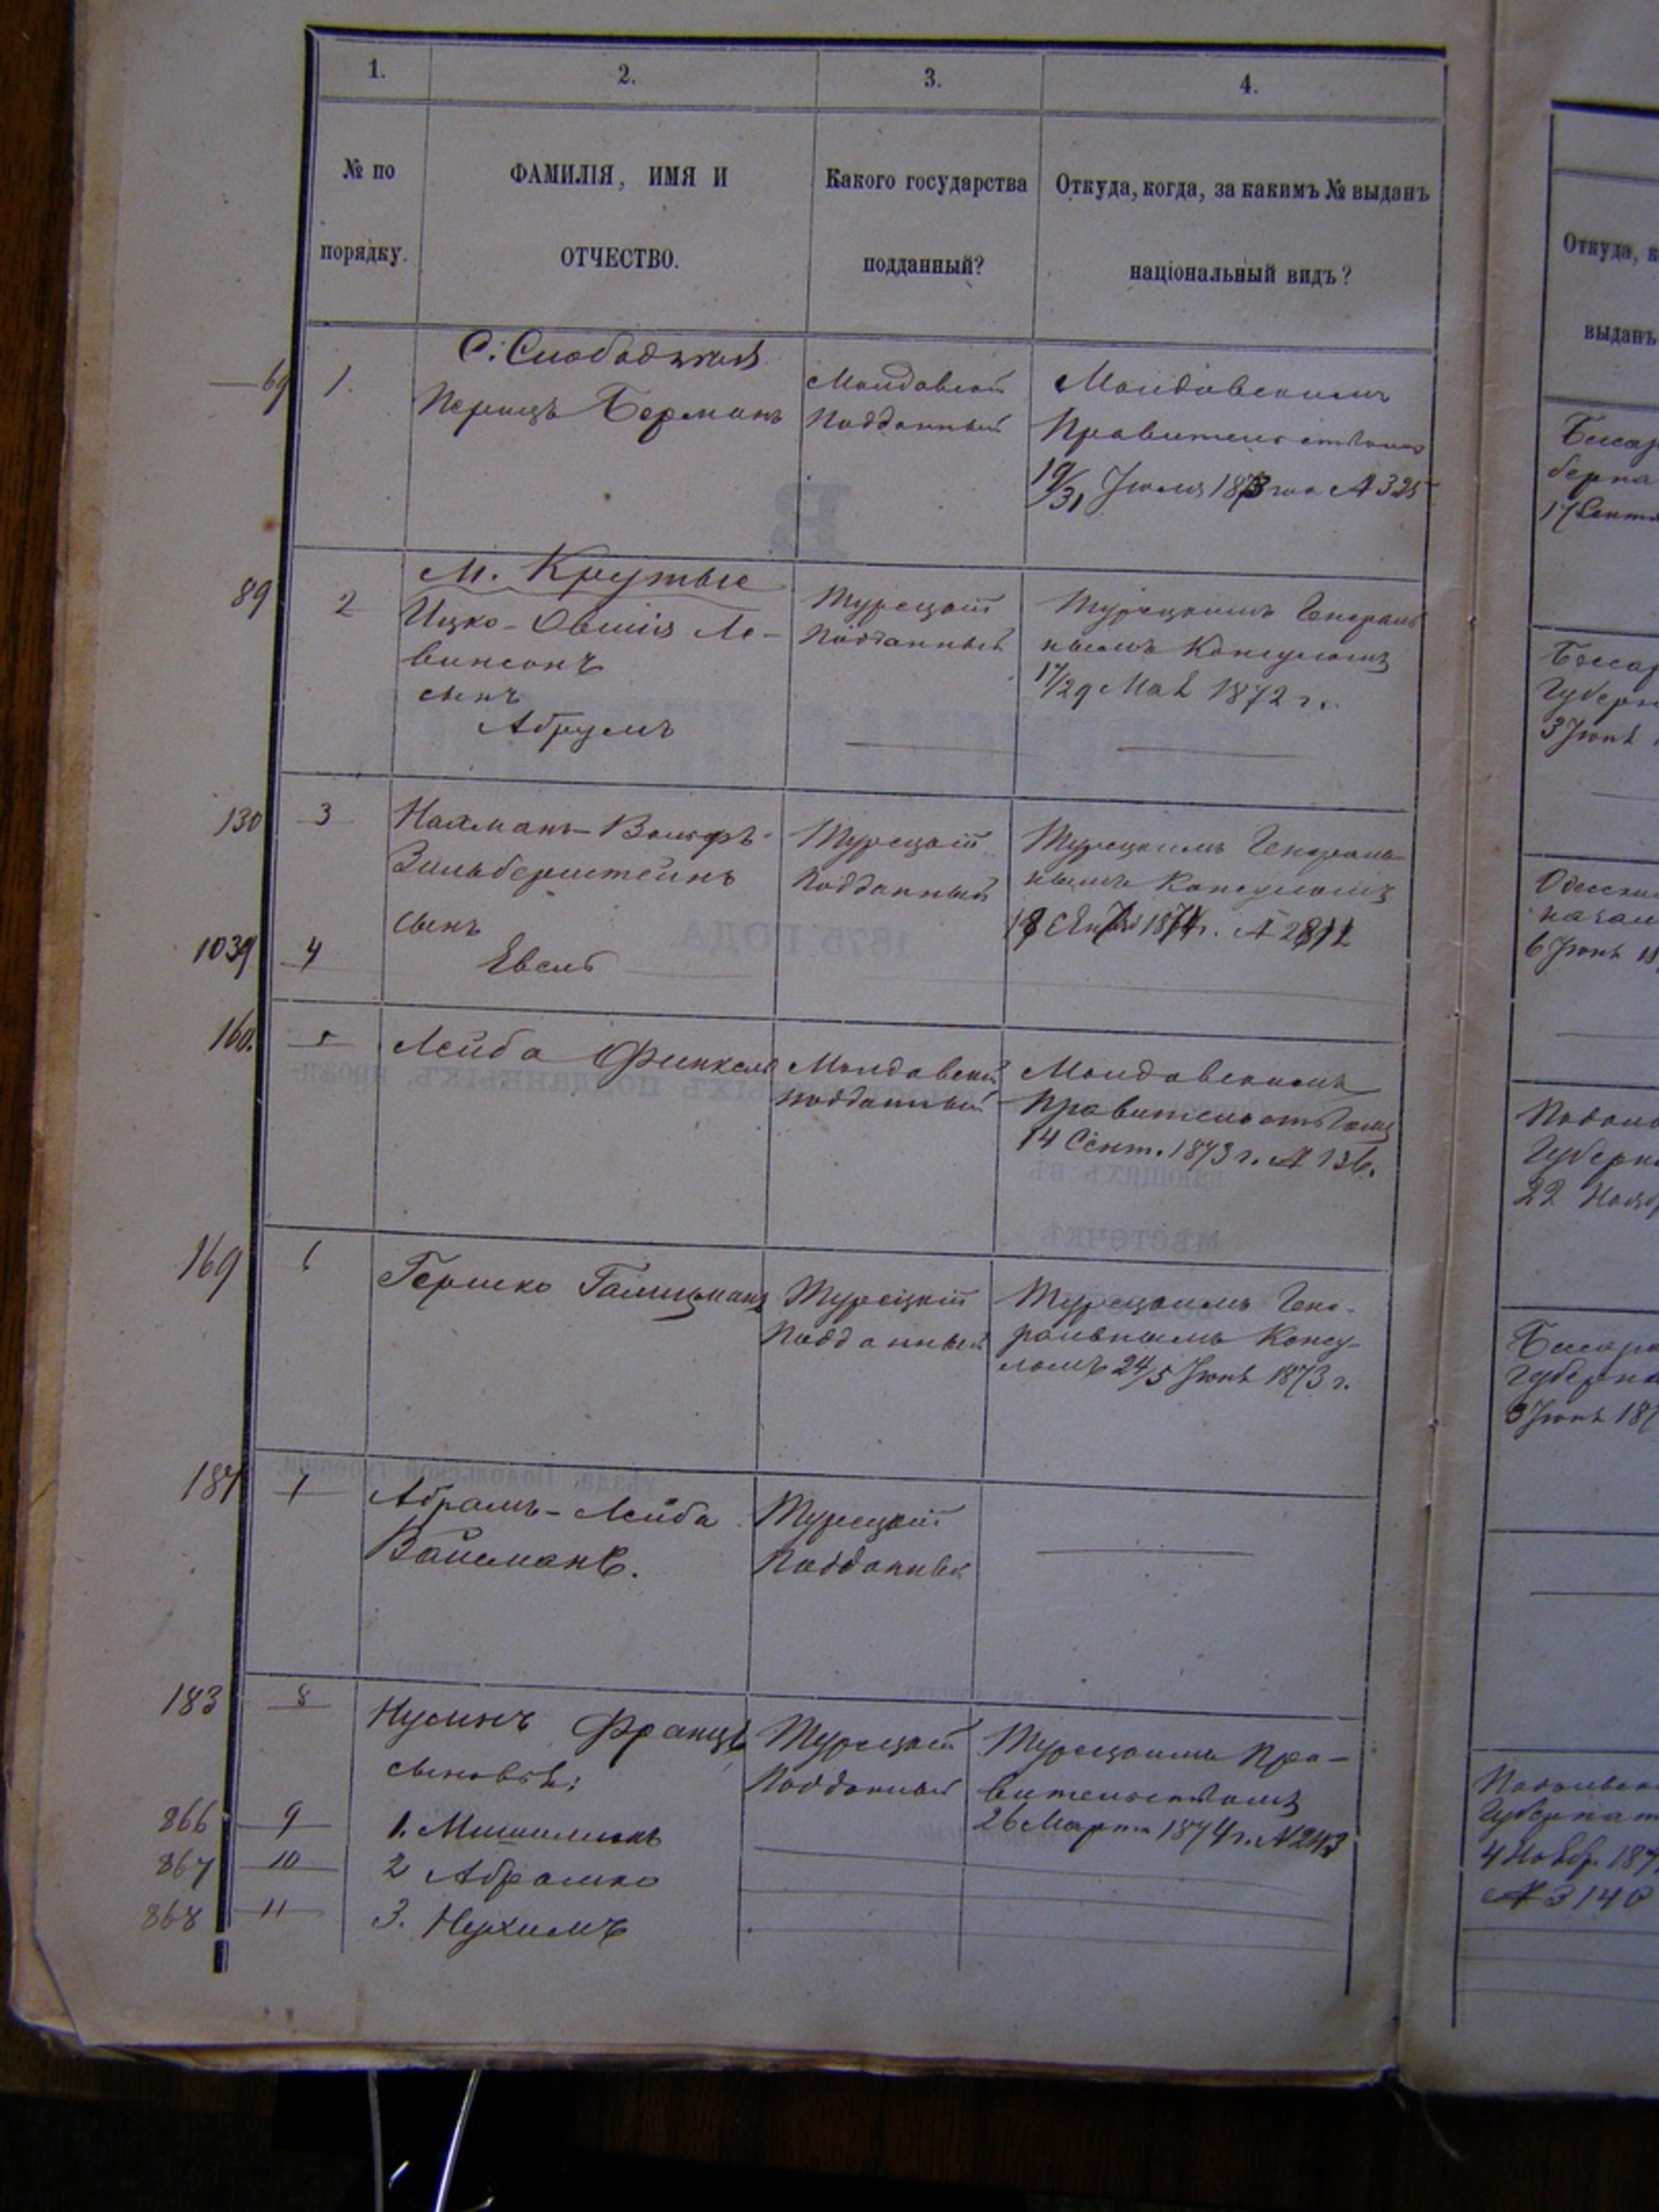 1. 2. 3. 4.
№ по порядку.
ФАМИЛІЯ, ИМЯ И
ОТЧЕСТВО.
Какого государства
подданный?
Откуда, когда, за какимъ № выданъ
національный видъ?
Откуда, к
выданъ
С. Слободзея
69 1. Перецъ Берманъ
Молдавскій
Подданный
Молдавскимъ
Правительствомъ
19/31 Іюля 1873 года № 325
М. Крутые
89 2 Ицко-Овшія Ле-
винсонъ
сынъ
Абрумъ
Турецкій
Подданный
Турецкимъ Генераль
нымъ Консуломъ
17/29 Мая 1872 г.
130 3 Нахманъ-Вольфъ
Зильберштейнъ
сынъ
1039 4 Евель
Турецкій
Подданный
Турецкимъ Генераль-
нымъ Консуломъ
160. 5 Лейба Финкель
Молдавскій
подданный
Молдавскимъ
Правительствомъ
14 Сент. 1873 г. № 136.
169 6 Гершко Галицманъ
Турецкій
Подданный
Турецкимъ Гене-
ральнымъ Консу-
ломъ 24/5 Іюня 1873 г.
187 7 Абрамъ-Лейба
Вайсманъ.
Турецкій
Подданный
183 8 Нусинъ Францъ
сыновья:
Турецкій
Подданный
Турецкимъ Пра-
вительствомъ
26 Марта 1874 г. № 243
866 9 1.
867 10 2 Абрамко
868 11 3. Нухимъ
Бессар
берна
17 Сентя
Бессар
Губерн
3 Іюня
Одесски
начал
6 Іюня 18
Подоль
Губерн
22 Нояб
Бессара
Губерна
3 Іюня 187
Подольски
Губернат
4 Ноябр. 187
№ 3140